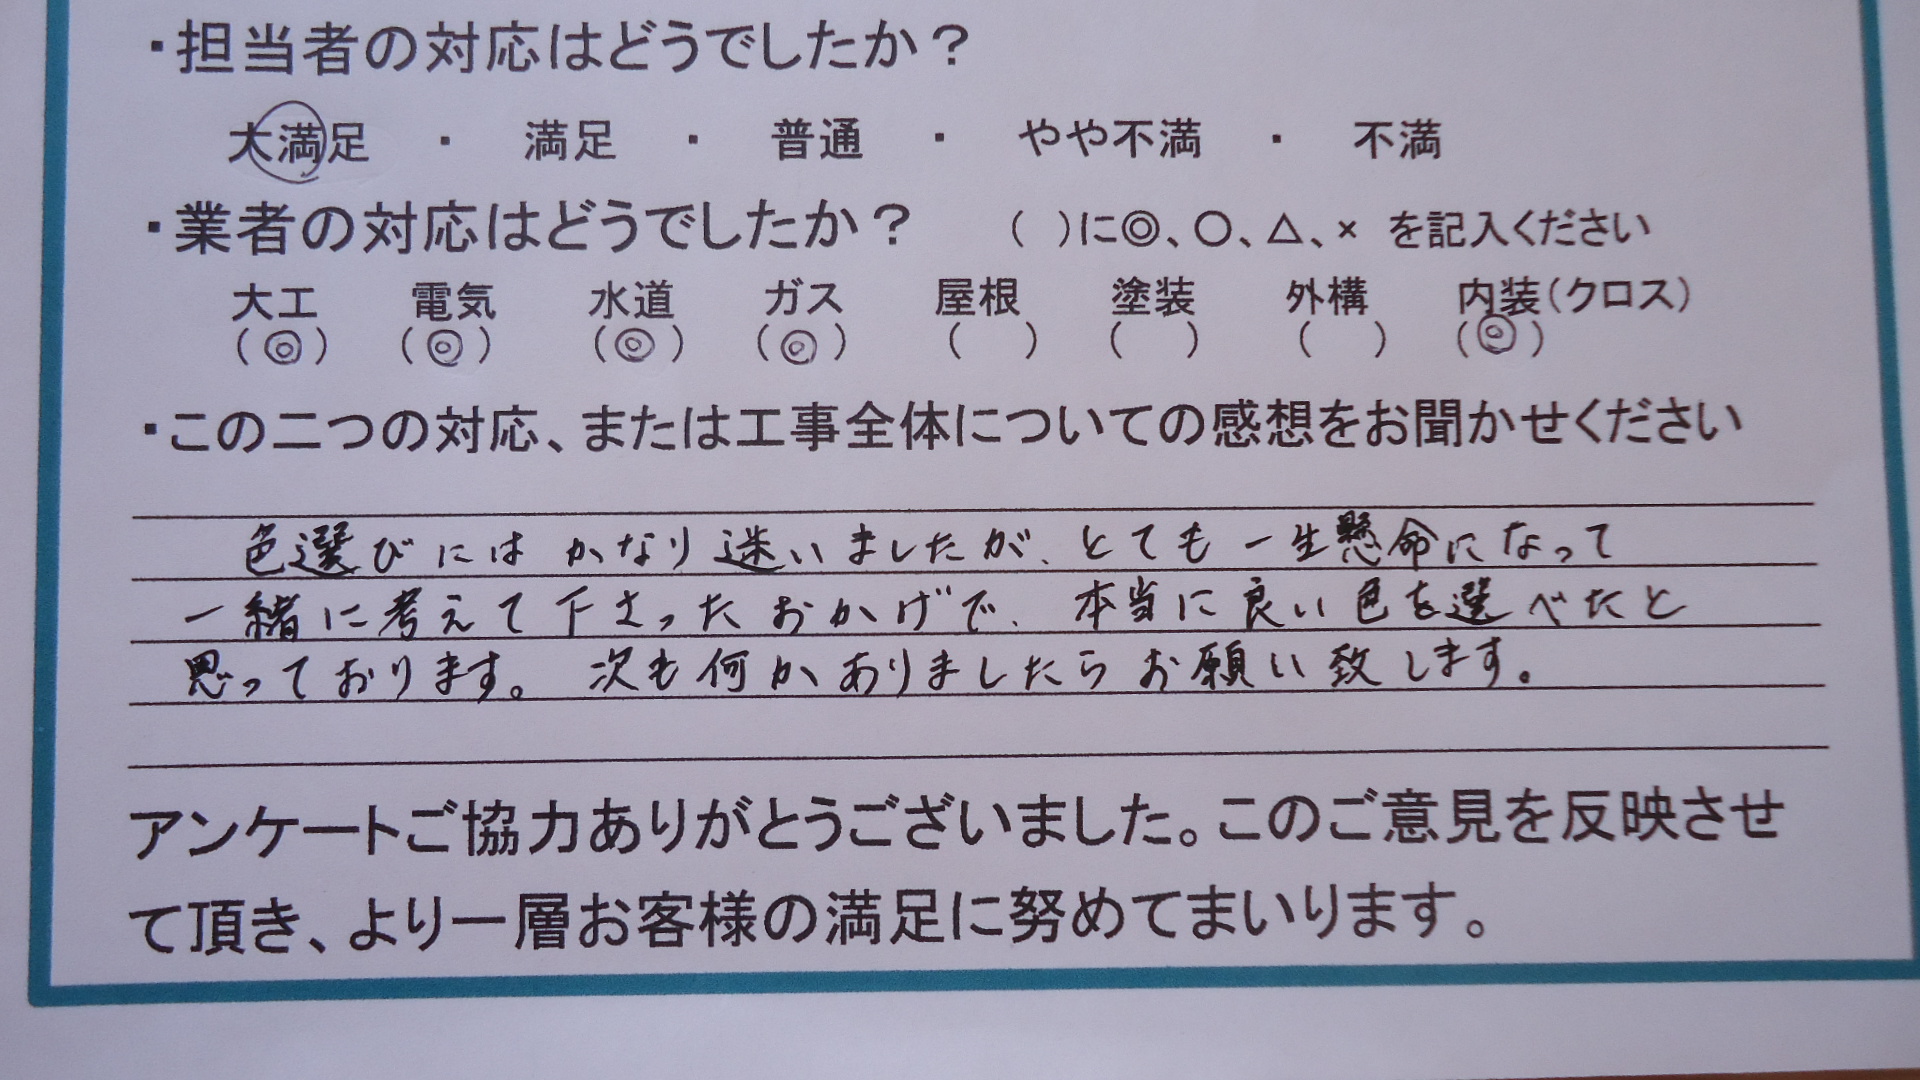 ・担当者の対応はどうでしたか？
大満足 ・ 満足 ・ 普通 ・ やや不満 ・ 不満
・業者の対応はどうでしたか？ ( )に◎、○、△、× を記入ください
大工 電気 水道 ガス 屋根 塗装 外構 内装(クロス)
(◎) (◎) (◎) (◎) ( ) ( ) ( ) (◎)
・この二つの対応、または工事全体についての感想をお聞かせください
色選びにはかなり迷いましたが、とても一生懸命になって
一緒に考えて下さったおかげで、本当に良い色を選べたと
思っております。次も何かありましたらお願い致します。
アンケートご協力ありがとうございました。このご意見を反映させ
て頂き、より一層お客様の満足に努めてまいります。